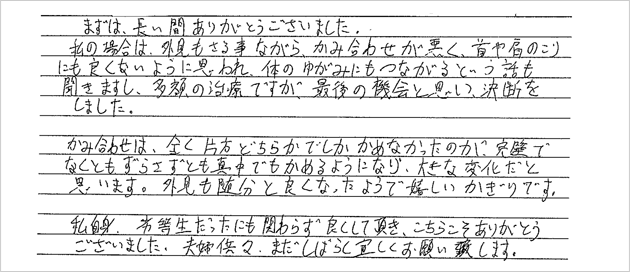 まずは、長い間ありがとうございました。
私の場合は、外見もさる事ながら、かみ合わせが悪く、首や肩のこり
にも良くないように思われ、体のゆがみにもつながるという話も
聞きますし、多額の治療ですが、最後の機会と思って、決断を
しました。
かみ合わせは、全く片方どちらかでしかかめなかったのが、完璧で
なくともずらさずとも真中でもかめるようになり、大きな変化だと
思います。外見も随分と良くなったようで嬉しいかぎりです。
私自身、劣等生だったにも関わらず良くして頂き、こちらこそありがとう
ございました。夫婦供々、まだしばらく宜しくお願い致します。